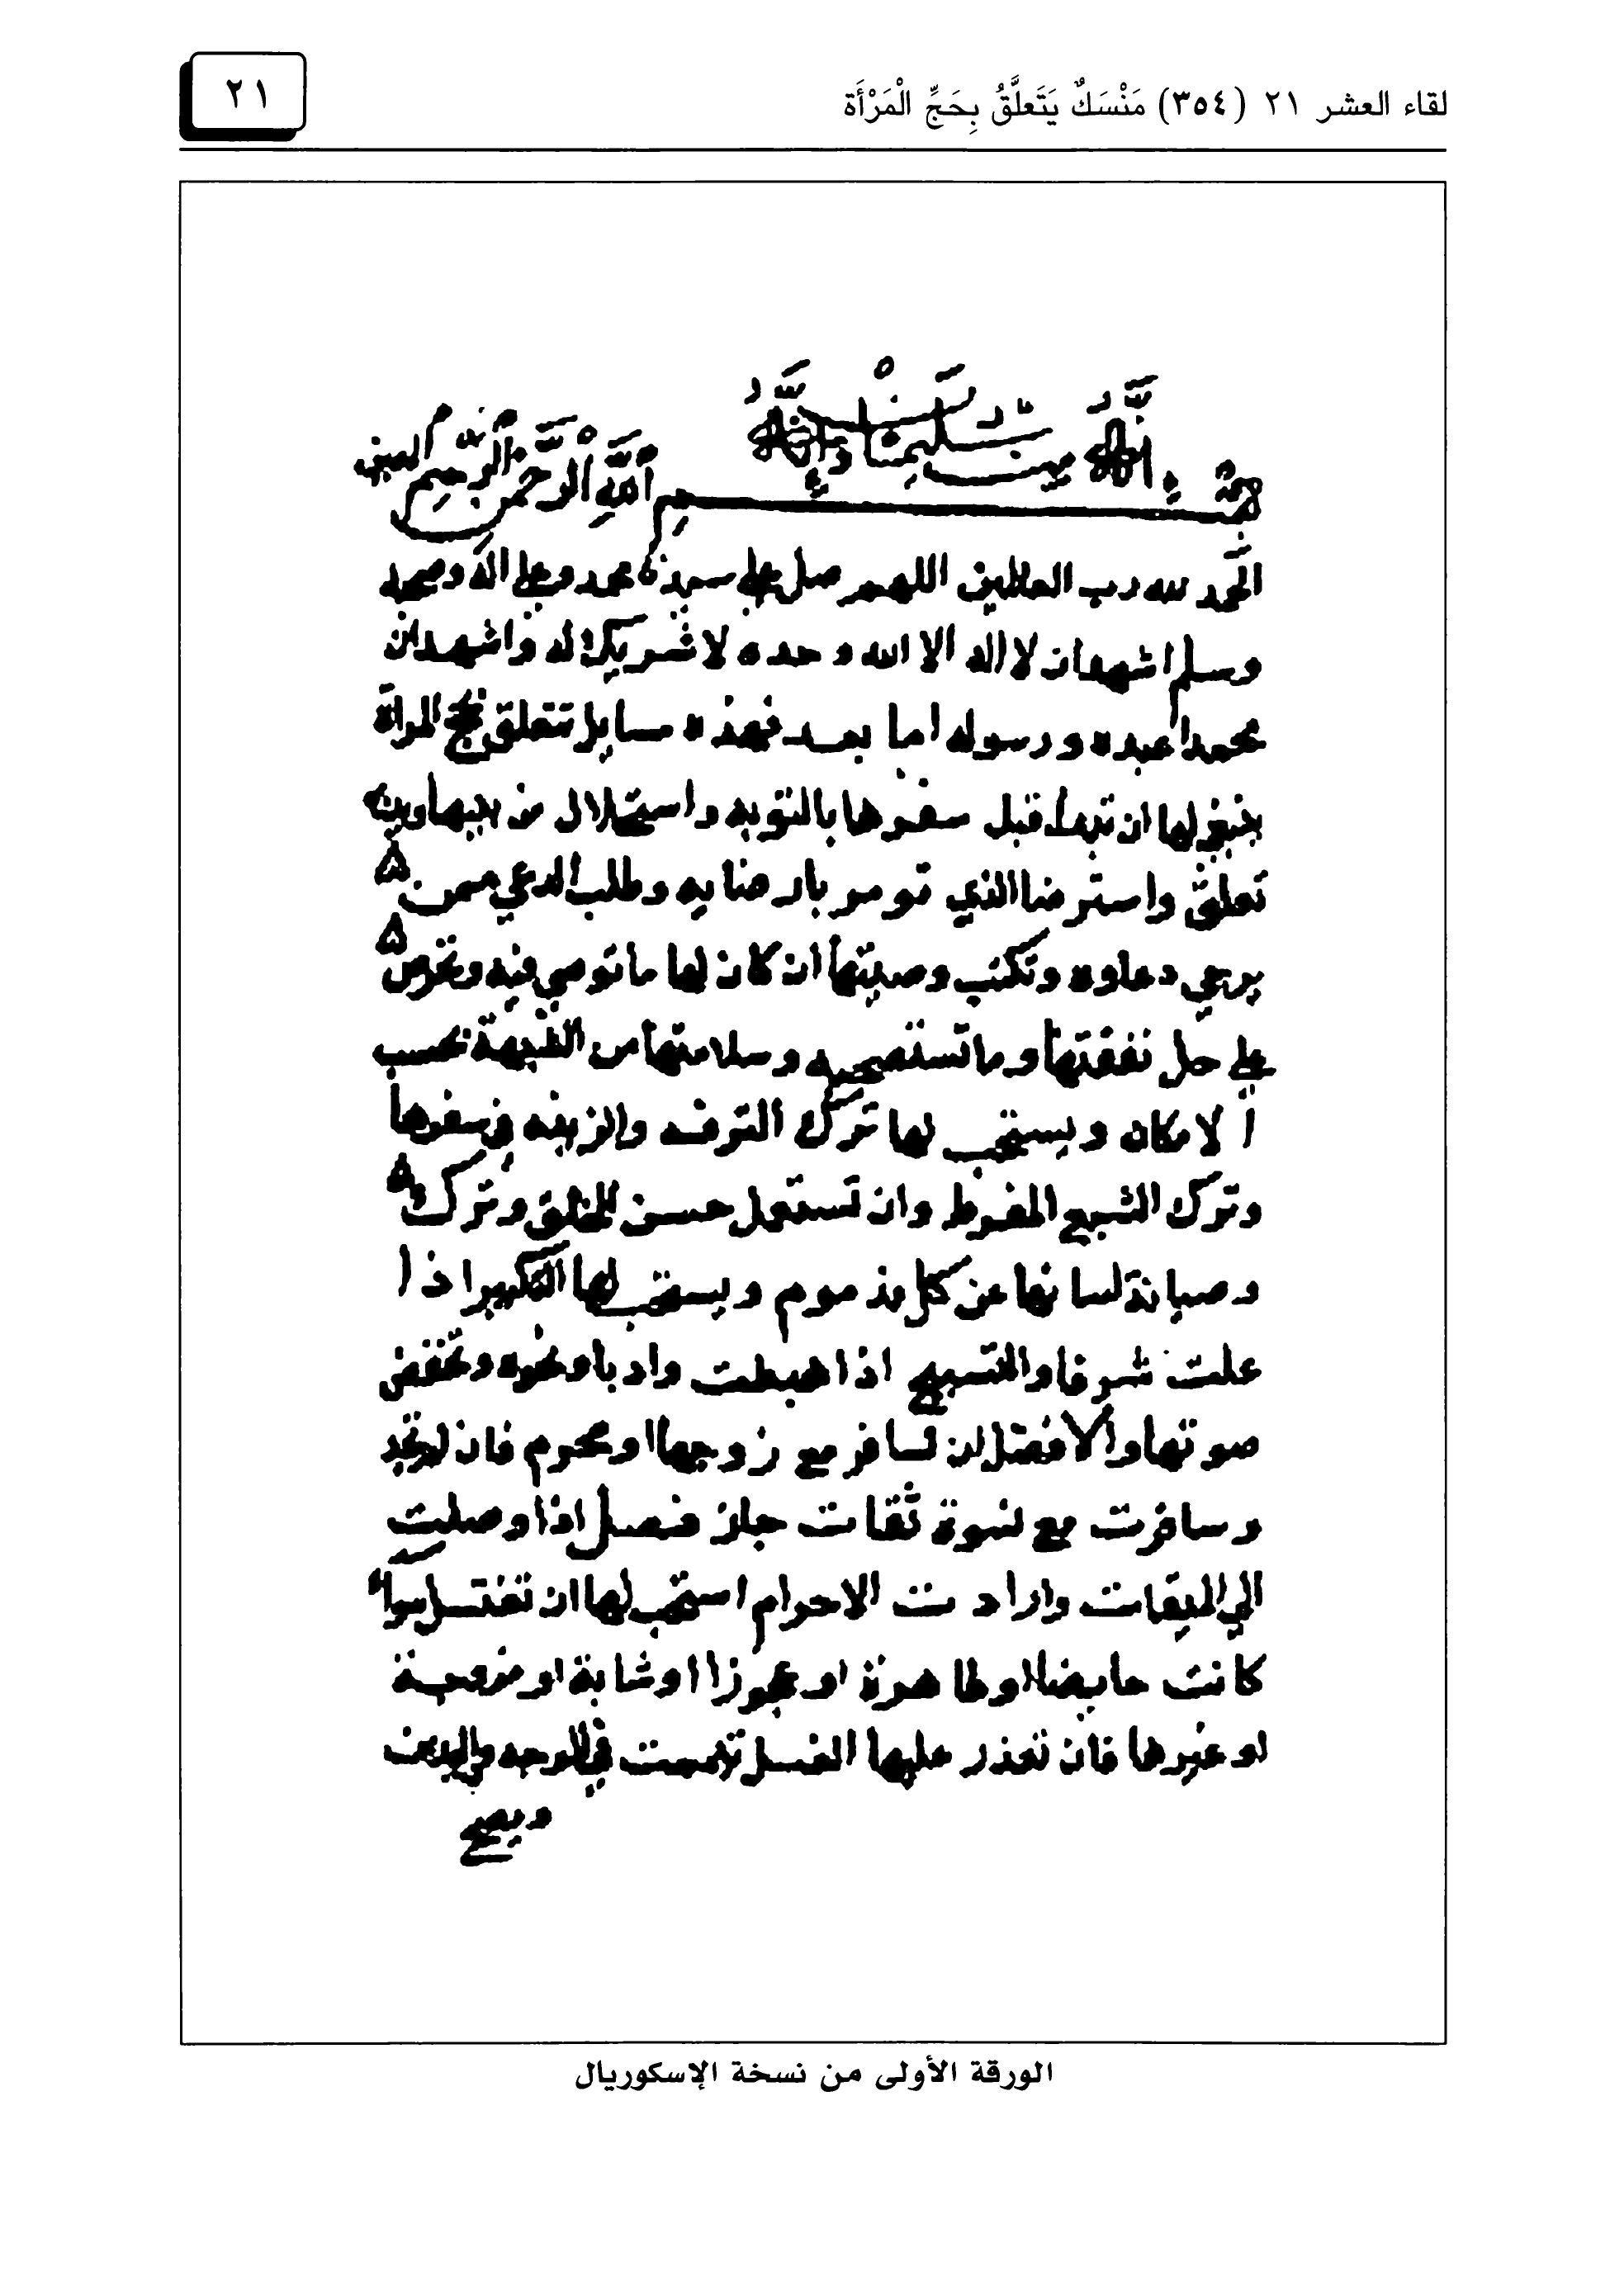 لقاء العشر ٢١ (٣٥٤) مَنْسَكٌ يَتَعلَّقُ بِحَجِّ الْمَرْأَة
٢١
إنه من سليمان وإنه
بسم الله الرحمن الرحيم المعين
الحمد لله رب العالمين اللهم صل على سيدنا محمد وعلى اله وصحبه
وسلم اشهد ان لا اله الا الله وحده لا شريك له واشهد ان
محمدا عبده ورسوله اما بعد فهذه مسايل تتعلق بحج المراة
ينبغي لها ان تبدا قبل سفرها بالتوبه واستحلال من بينها وبينه
تعلق واسترضا الذي تومر بارضايه وطلب الدعي ممن
يرجي دعاوه وتكتب وصيتها ان كان لها ما توصي فيه وتحرص
علي حل نفقتها وما تستصحبه وسلامتها من الشبهة بحسب
الامكان ويستحب لها ترك الترفه والزينه في سفرها
وترك الشبع المفرط وان تستعمل حسن الخلق وترك
وصيانة لسانها عن كل مذموم ويستحب لها التكبير اذا
علت شرفا والتسبيح اذا هبطت واديا ونحوه وتخفض
صوتها والافضل ان تسافر مع زوجها او محرم فان لم تجد
وسافرت مع نسوة ثقات جاز فصل اذا وصلت
الي الميقات وارادت الاحرام استحب لها ان تغتسل سوا
كانت حايضا او طاهرة او عجوزا او شابة او مزوجة
او غيرها فان تعذر عليها الغسل تيممت في الوجه واليدين
ويصح
الورقة الأولى من نسخة الإسكوريال